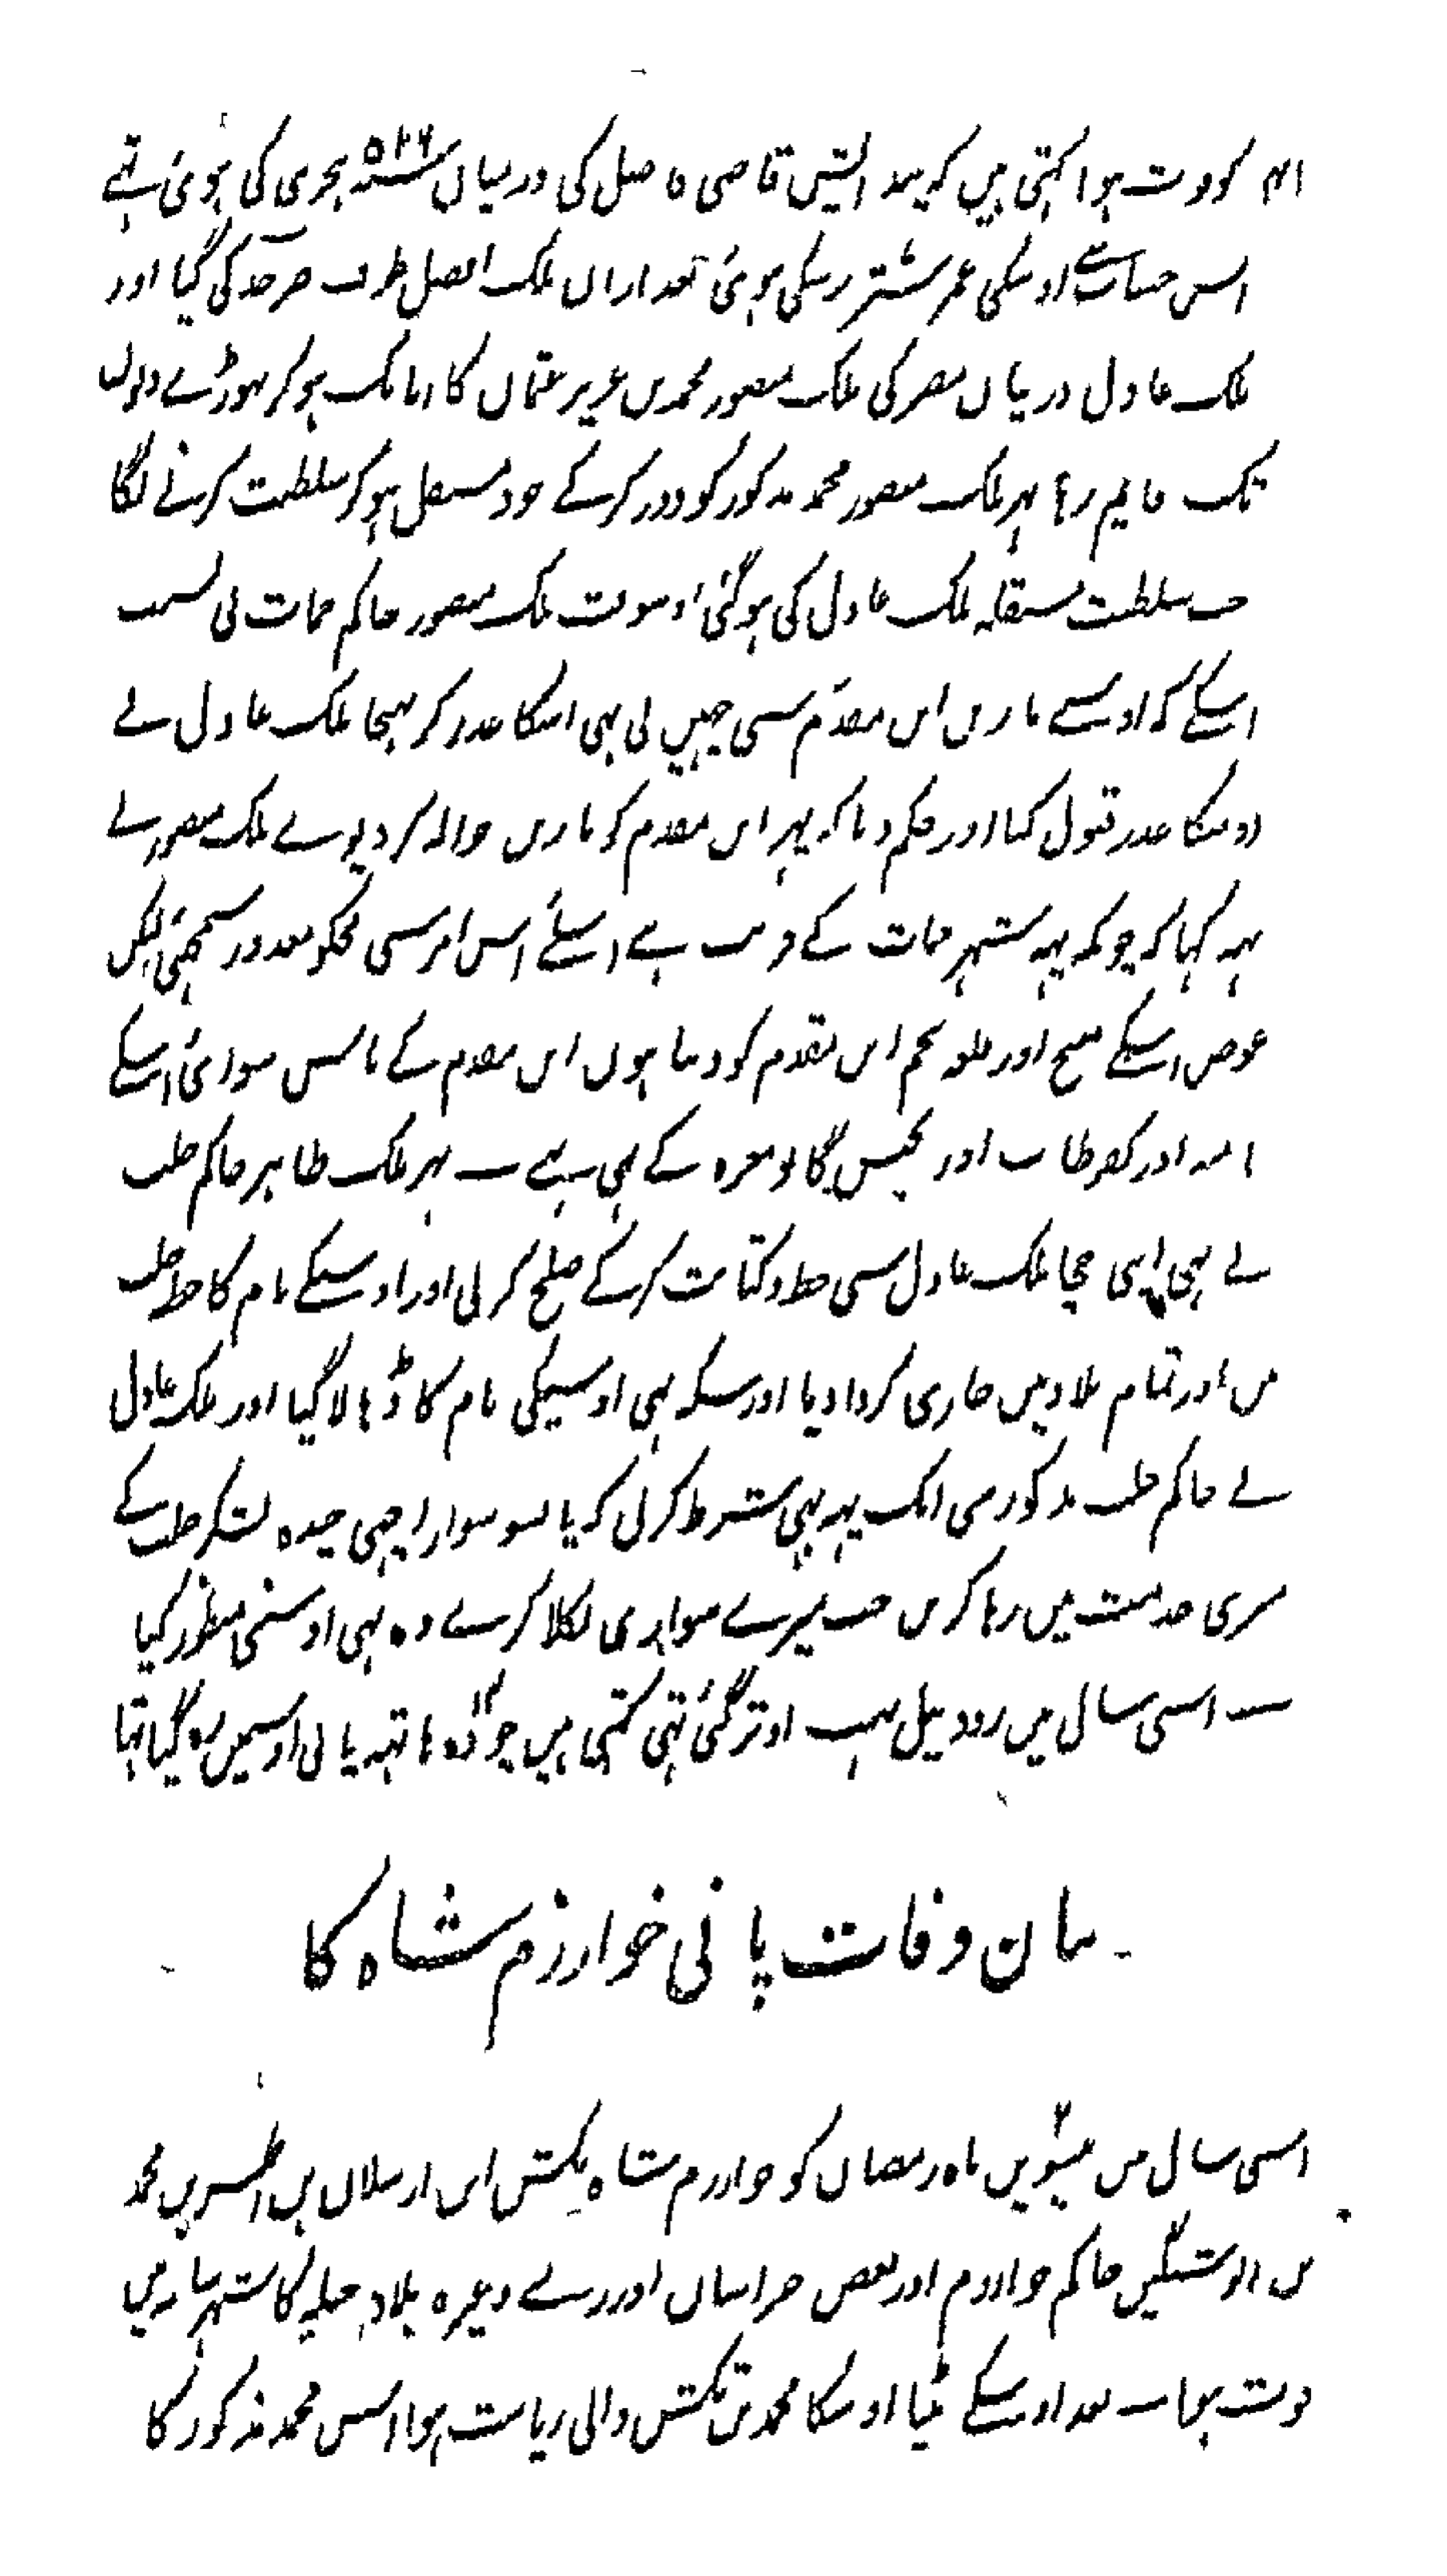 ایام کو فوت ہوا کہتی ہیں کہ پیدایش قاضی فاضل کی درمیان ۵۲۶ سنہ ہجری کی ہوئی تہے
اس حساب سے اوسکی عمر ستر برسکی ہوئی بعد ازاں ملک افضل طرف صرخد کی گیا اور
ملک عادل درمیان مصر کی ملک منصور محمد بن عزیز عثمان کا اتابک ہو کر تہوڑے دنوں
تک قایم رہا پہر ملک منصور محمد مذکور کو دور کر کے خود مستقل ہو کر سلطنت کرنے لگا
جب سلطنت مستقلہ ملک عادل کی ہو گئی اوسوقت ملک منصور حاکم حمات نی بسبب
اسکے کہ اوسے بارین ابن مقدم سی چہین لی تہی اسکا عذر کر بہیجا ملک عادل نے
اوسکا عذر قبول کیا اور حکم دیا کہ پہر ابن مقدم کو بارین حوالہ کر دیوے ملک منصور نے
یہہ کہا کہ چونکہ یہہ شہر حمات کے قریب ہے اسلئے اس امر سی مجکو معذور سمجہئی لیکن
عوض اسکے منبج اور قلعہ نجم ابن مقدم کو دیتا ہوں ابن مقدم کے پاس سوائی اسکے
افامیہ اور کفرطاب اور پچیس گانو معرہ کے بہی تہے ـــ پہر ملک ظاہر حاکم حلب
نے بہی اپنی چچا ملک عادل سی خط و کتابت کر کے صلح کر لی اور اوسکے نام کا خطبہ حلب
میں اور تمام بلاد میں جاری کروا دیا اور سکہ بہی اوسیکی نام کا ڈہالا گیا اور ملک عادل
نے حاکم حلب مذکور سی ایک یہہ بہی شرط کر لی کہ پانسو سوار اچہی چیدہ لشکر حلب کے
میری خدمت میں رہا کریں جب میرے سواری نکلا کرے وہ بہی اوسنی منظور کیا
ـــ اسی سال میں رود نیل بہت اوتر گئی تہی کہتی ہیں چودہ ہاتہہ پانی اوسمیں رہ گیا تہا
بیان وفات پانی خوارزم شاہ کا
اسی سال میں بیسویں ماہ رمضان کو خوارزم شاہ تکش ابن ارسلان بن اطسز بن محمد
بن انوشتگین حاکم خوارزم اور بعض خراسان اور رے وغیرہ بلاد جبلیہ کا شہرستانہ میں
فوت ہوا ـــ بعد اوسکے بیٹا اوسکا محمد بن تکش والی ریاست ہوا اس محمد مذکور کا